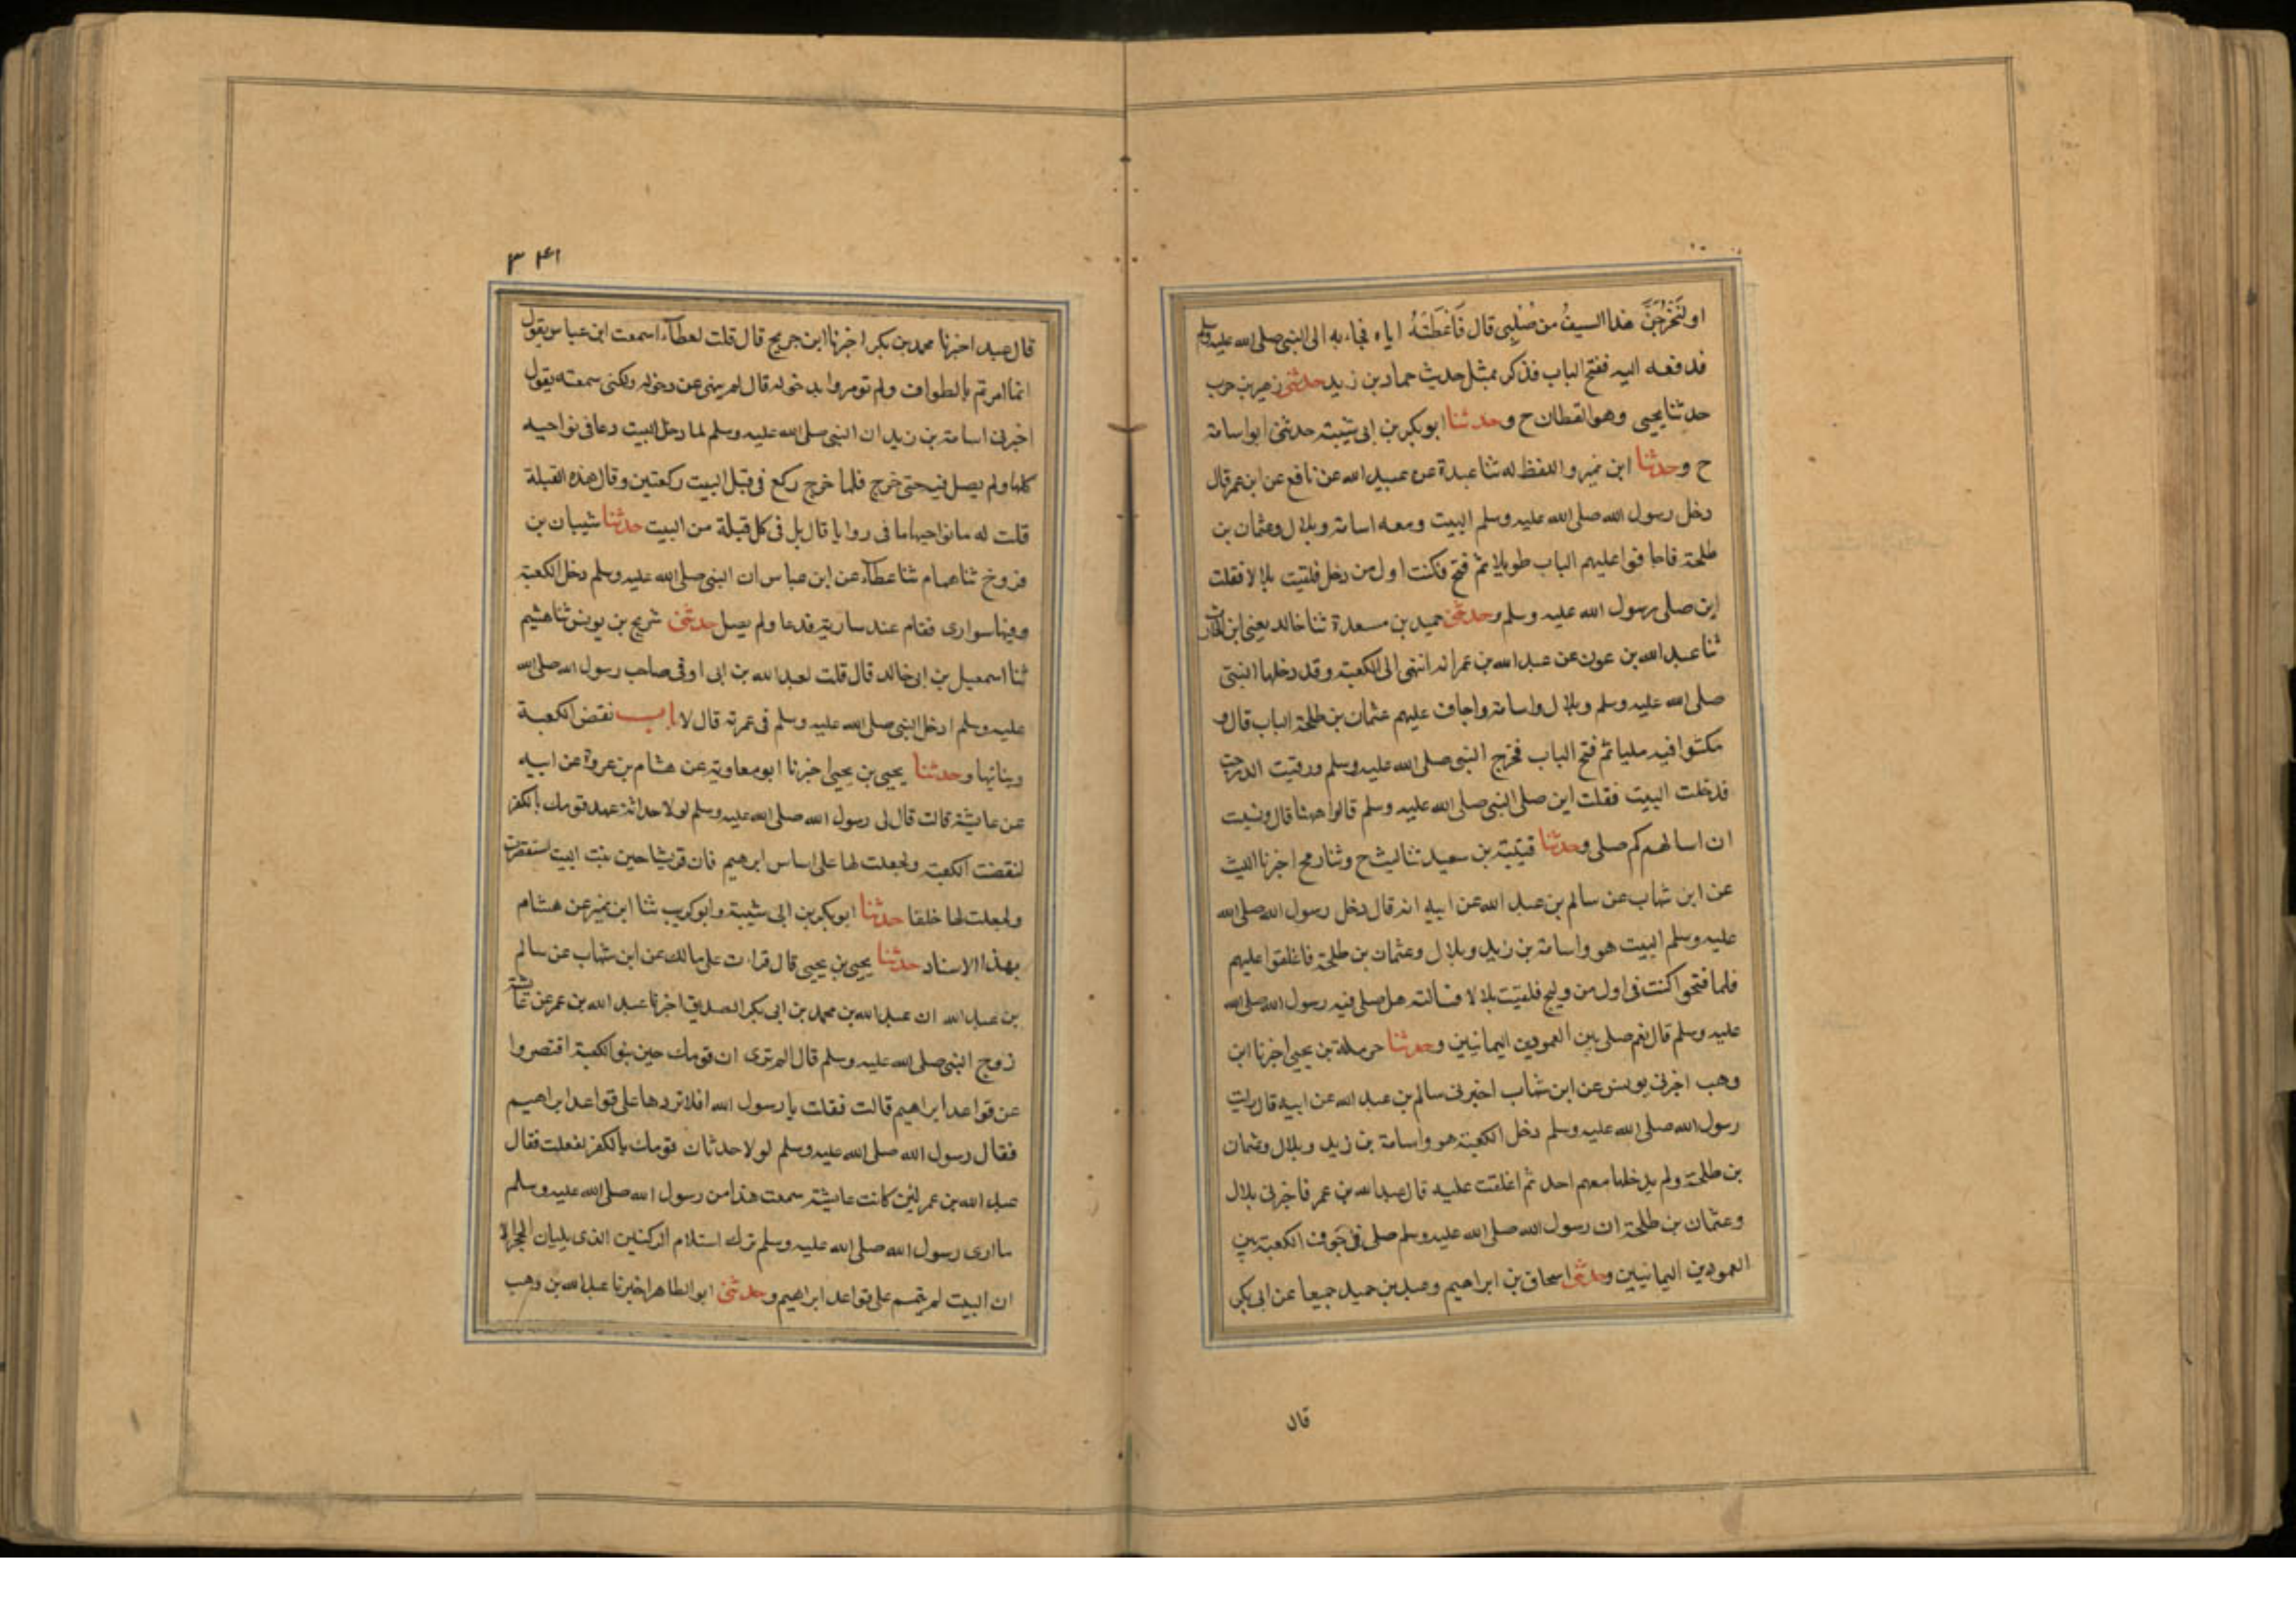 او لَتَخْرُجَنَّ هذا السيفُ من صُلْبِى قال فَاَعْطَتْهُ اياه فجاء به الى النبى صلى الله عليه وسلم
فدفعه اليه ففتح الباب فذكر بمثل حديث حماد بن زيد حدثنى زهير بن حرب
حدثنا يحيى وهو القطان ح وحدثنا ابو بكر بن ابى شيبة حدثنى ابو اسامة
ح وحدثنا ابن نمير واللفظ له ثنا عبدة عن عبيد الله عن نافع عن ابن عمر قال
دخل رسول الله صلى الله عليه وسلم البيت ومعه اسامة وبلال وعثمان بن
طلحة فاجافوا عليهم الباب طويلا ثم فتح فكنت اول من دخل فلقيت بلالا فقلت
اين صلى رسول الله عليه وسلم وحدثنى حميد بن مسعدة ثنا خالد يعنى ابن الحارث
ثنا عبد الله بن عون عن عبد الله بن عمر انه انتهى الى الكعبة وقد دخلها النبى
صلى الله عليه وسلم وبلال واسامة واجاف عليهم عثمان بن طلحة الباب قال و
مكثوا فيه مليا ثم فتح الباب فخرج النبى صلى الله عليه وسلم ورقيت الدرجة
فدخلت البيت فقلت اين صلى النبى صلى الله عليه وسلم قالوا ههنا قال ونسيت
ان اسالهم كم صلى وحدثنا قتيبة بن سعيد ثنا ليث ح وثنا رمح اخبرنا الليث
عن ابن شهاب عن سالم بن عبد الله عن ابيه انه قال دخل رسول الله صلى الله
عليه وسلم البيت هو واسامة بن زيد وبلال وعثمان بن طلحة فاغلقوا عليهم
فلما فتحوا كنت فى اول من ولج فلقيت بلالا فسالته هل صلى فيه رسول الله صلى الله
عليه وسلم قال نعم صلى بين العمودين اليمانيين وحدثنا حرملة بن يحيى اخبرنا ابن
وهب اخبرنى يونس عن ابن شهاب اخبرنى سالم بن عبد الله عن ابيه قال رايت
رسول الله صلى الله عليه وسلم دخل الكعبة هو واسامة بن زيد وبلال وعثمان
بن طلحة ولم يدخلها معهم احد ثم اغلقت عليه قال عبد الله بن عمر فاخبرنى بلال
وعثمان بن طلحة ان رسول الله صلى الله عليه وسلم صلى فى جوف الكعبة بين
العمودين اليمانيين وحدثنى اسحاق بن ابراهيم وعبد بن حميد جميعا عن ابى بكر
قال
٣٤١
قال عبد اخبرنا محمد بن بكر اخبرنا ابن جريج قال قلت لعطاء اسمعت ابن عباس يقول
انما امرتم بالطواف ولم تومروا بدخوله قال لم ينهى عن دخوله ولكنى سمعته يقول
اخبرنى اسامة بن زيد ان النبى صلى الله عليه وسلم لما دخل البيت دعا فى نواحيه
كلها ولم يصل فيه حتى خرج فلما خرج ركع فى قبل البيت ركعتين وقال هذه القبلة
قلت له ما نواحيها ما فى روايا قال بل فى كل قبلة من البيت حدثنا شيبان بن
فروخ ثنا همام ثنا عطاء عن ابن عباس ان النبى صلى الله عليه وسلم دخل الكعبة
وفيها سوارى فقام عند سارية فدعا ولم يصل حدثنى شريج بن يونس ثنا هشيم
ثنا اسمعيل بن ابى خالد قال قلت لعبد الله بن ابى اوفى صاحب رسول الله صلى الله
عليه وسلم ادخل النبى صلى الله عليه وسلم فى عمرته قال لا باب نقض الكعبة
وبنائها وحدثنا يحيى بن يحيى اخبرنا ابو معاوية عن هشام بن عروة عن ابيه
عن عايشة قالت قال لى رسول الله صلى الله عليه وسلم لولا حداثة عهد قومك بالكفر
لنقضت الكعبة ولجعلت لها على اساس ابرهيم فان قريشا حين بنت البيت استقصرت
ولجعلت لها خلفا حدثنا ابو بكر بن ابى شيبة وابو كريب ثنا ابن نمير عن هشام
بهذا الاسناد حدثنا يحيى بن يحيى قال قراءت على مالك عن ابن شهاب عن سالم
بن عبد الله ان عبد الله بن محمد بن ابى بكر الصديق اخبرنا عبد الله بن عمر عن عائشة
زوج النبى صلى الله عليه وسلم قال الم ترى ان قومك حين بنوا الكعبة اقتصروا
عن قواعد ابراهيم قالت فقلت يا رسول الله افلا تردها على قواعد ابراهيم
فقال رسول الله صلى الله عليه وسلم لولا حدثان قومك بالكفر لفعلت فقال
عبد الله بن عمر لئن كانت عايشة سمعت هذا من رسول الله صلى الله عليه وسلم
ما ارى رسول الله صلى الله عليه وسلم ترك استلام الركنين الذى يليان الحجر الا
ان البيت لم يتمم على قواعد ابراهيم وحدثنى ابو الطاهر اخبرنا عبد الله بن وهب